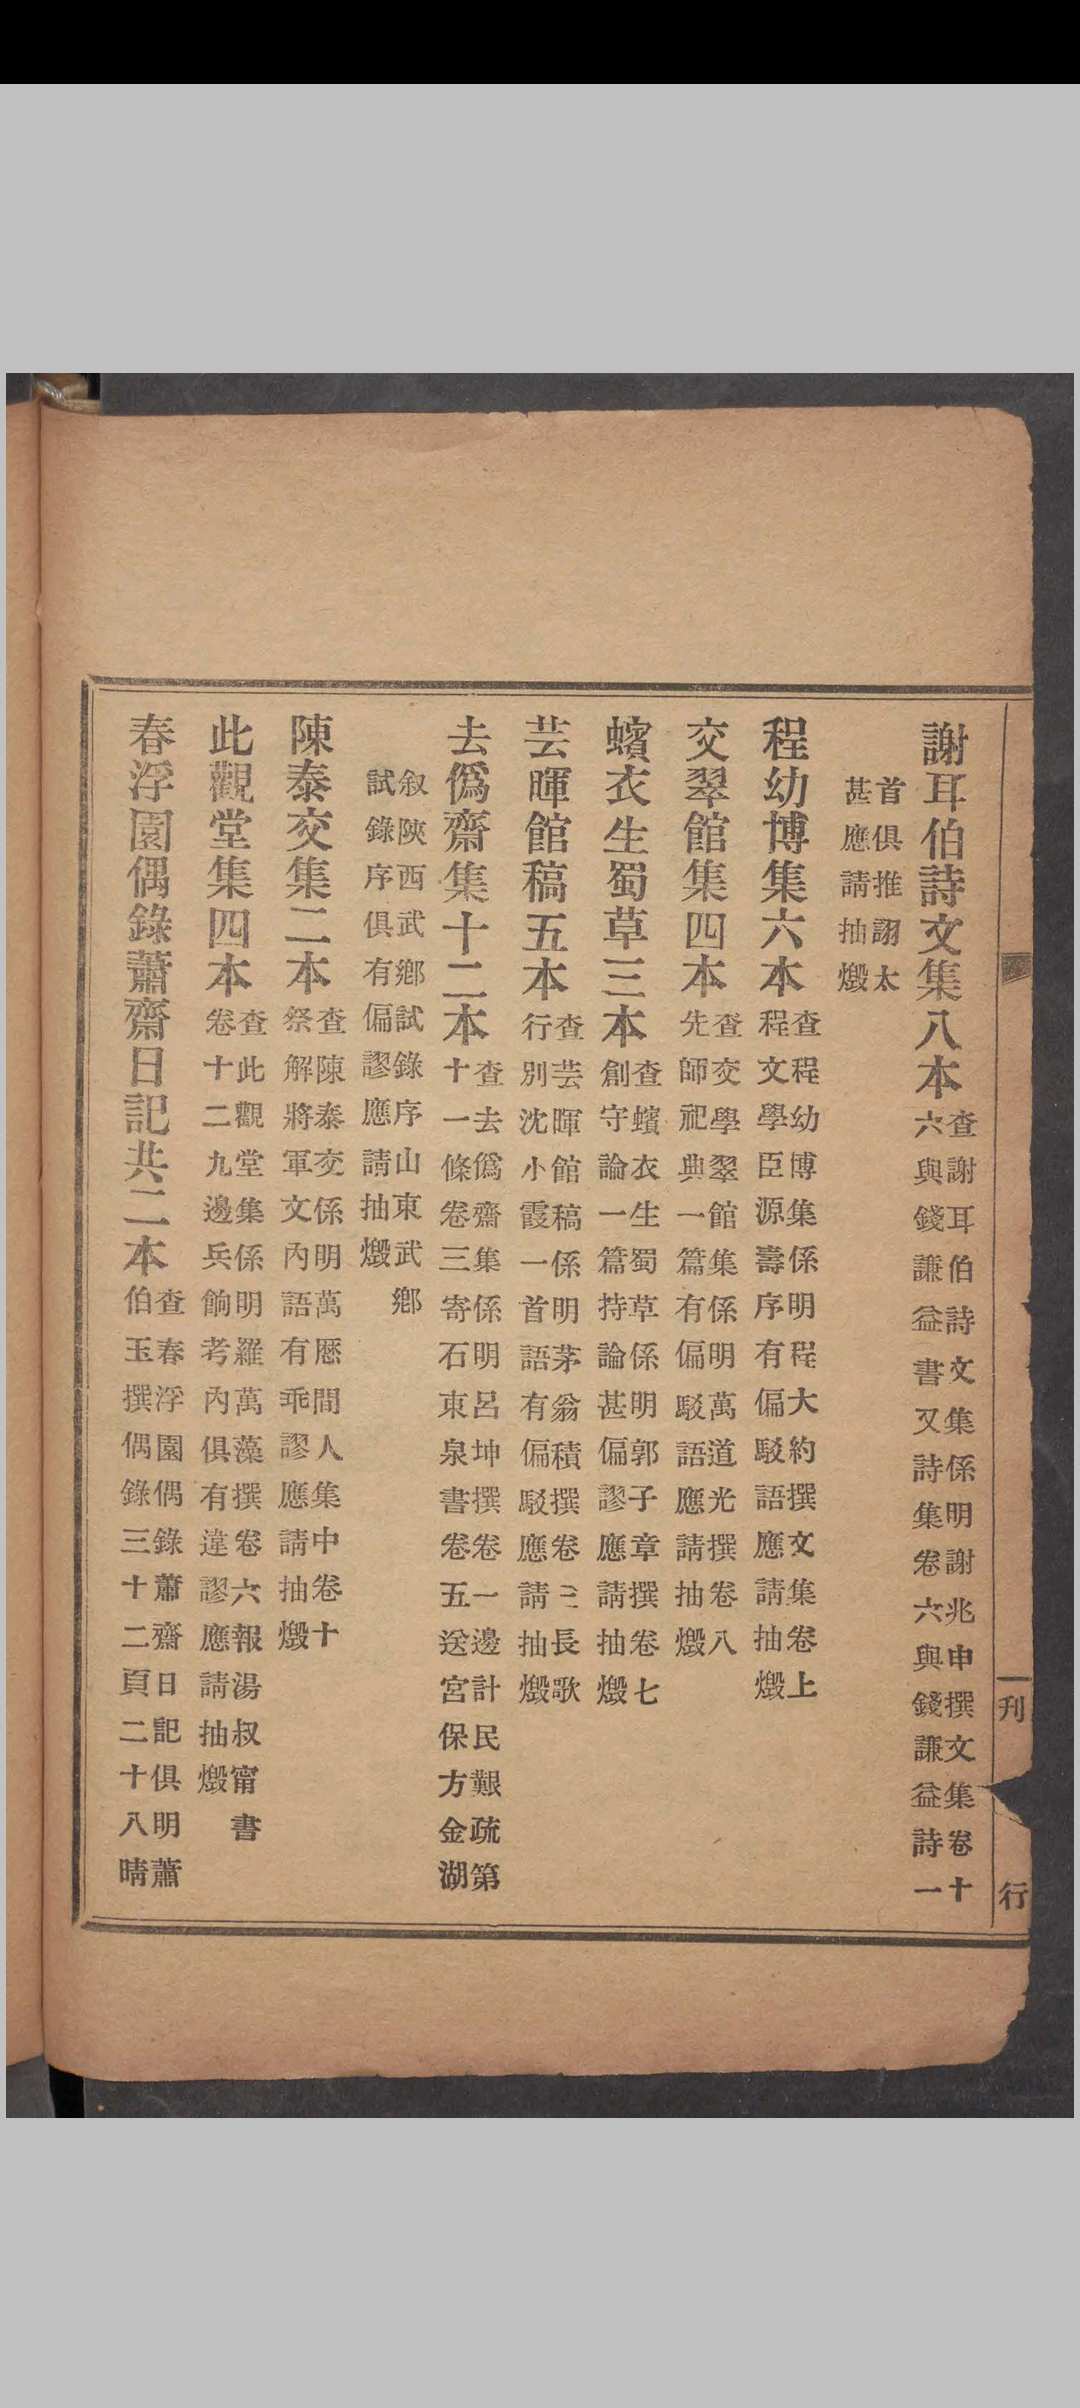 刊 行
謝耳伯詩文集八本
查謝耳伯詩文集係明謝兆申撰文集卷十
六與錢謙益書又詩集卷六與錢謙益詩一
首俱推詡太
甚應請抽燬
程幼博集六本
查程幼博集係明程大約撰文集卷上
程文學臣源壽序有偏駁語應請抽燬
交翠館集四本
查交學翠館集係明萬道光撰卷八
先師祀典一篇有偏駁語應請抽燬
蠙衣生蜀草三本
查蠙衣生蜀草係明郭子章撰卷七
創守論一篇持論甚偏謬應請抽燬
芸暉館稿五本
查芸暉館稿係明茅翁積撰卷三長歌
行別沈小霞一首語有偏駁應請抽燬
去僞齋集十二本
查去僞齋集係明呂坤撰卷一邊計民艱疏第
十一條卷三寄石東泉書卷五送宮保方金湖
叙陝西武鄉試錄序山東武鄉
試錄序俱有偏謬應請抽燬
陳泰交集二本
查陳泰交係明萬曆間人集中卷十
祭解將軍文內語有乖謬應請抽燬
此觀堂集四本
查此觀堂集係明羅萬藻撰卷六報湯叔甯書
卷十二九邊兵餉考內俱有違謬應請抽燬
春浮園偶錄蕭齋日記共二本
查春浮園偶錄蕭齋日記俱明蕭
伯玉撰偶錄三十二頁二十八晴